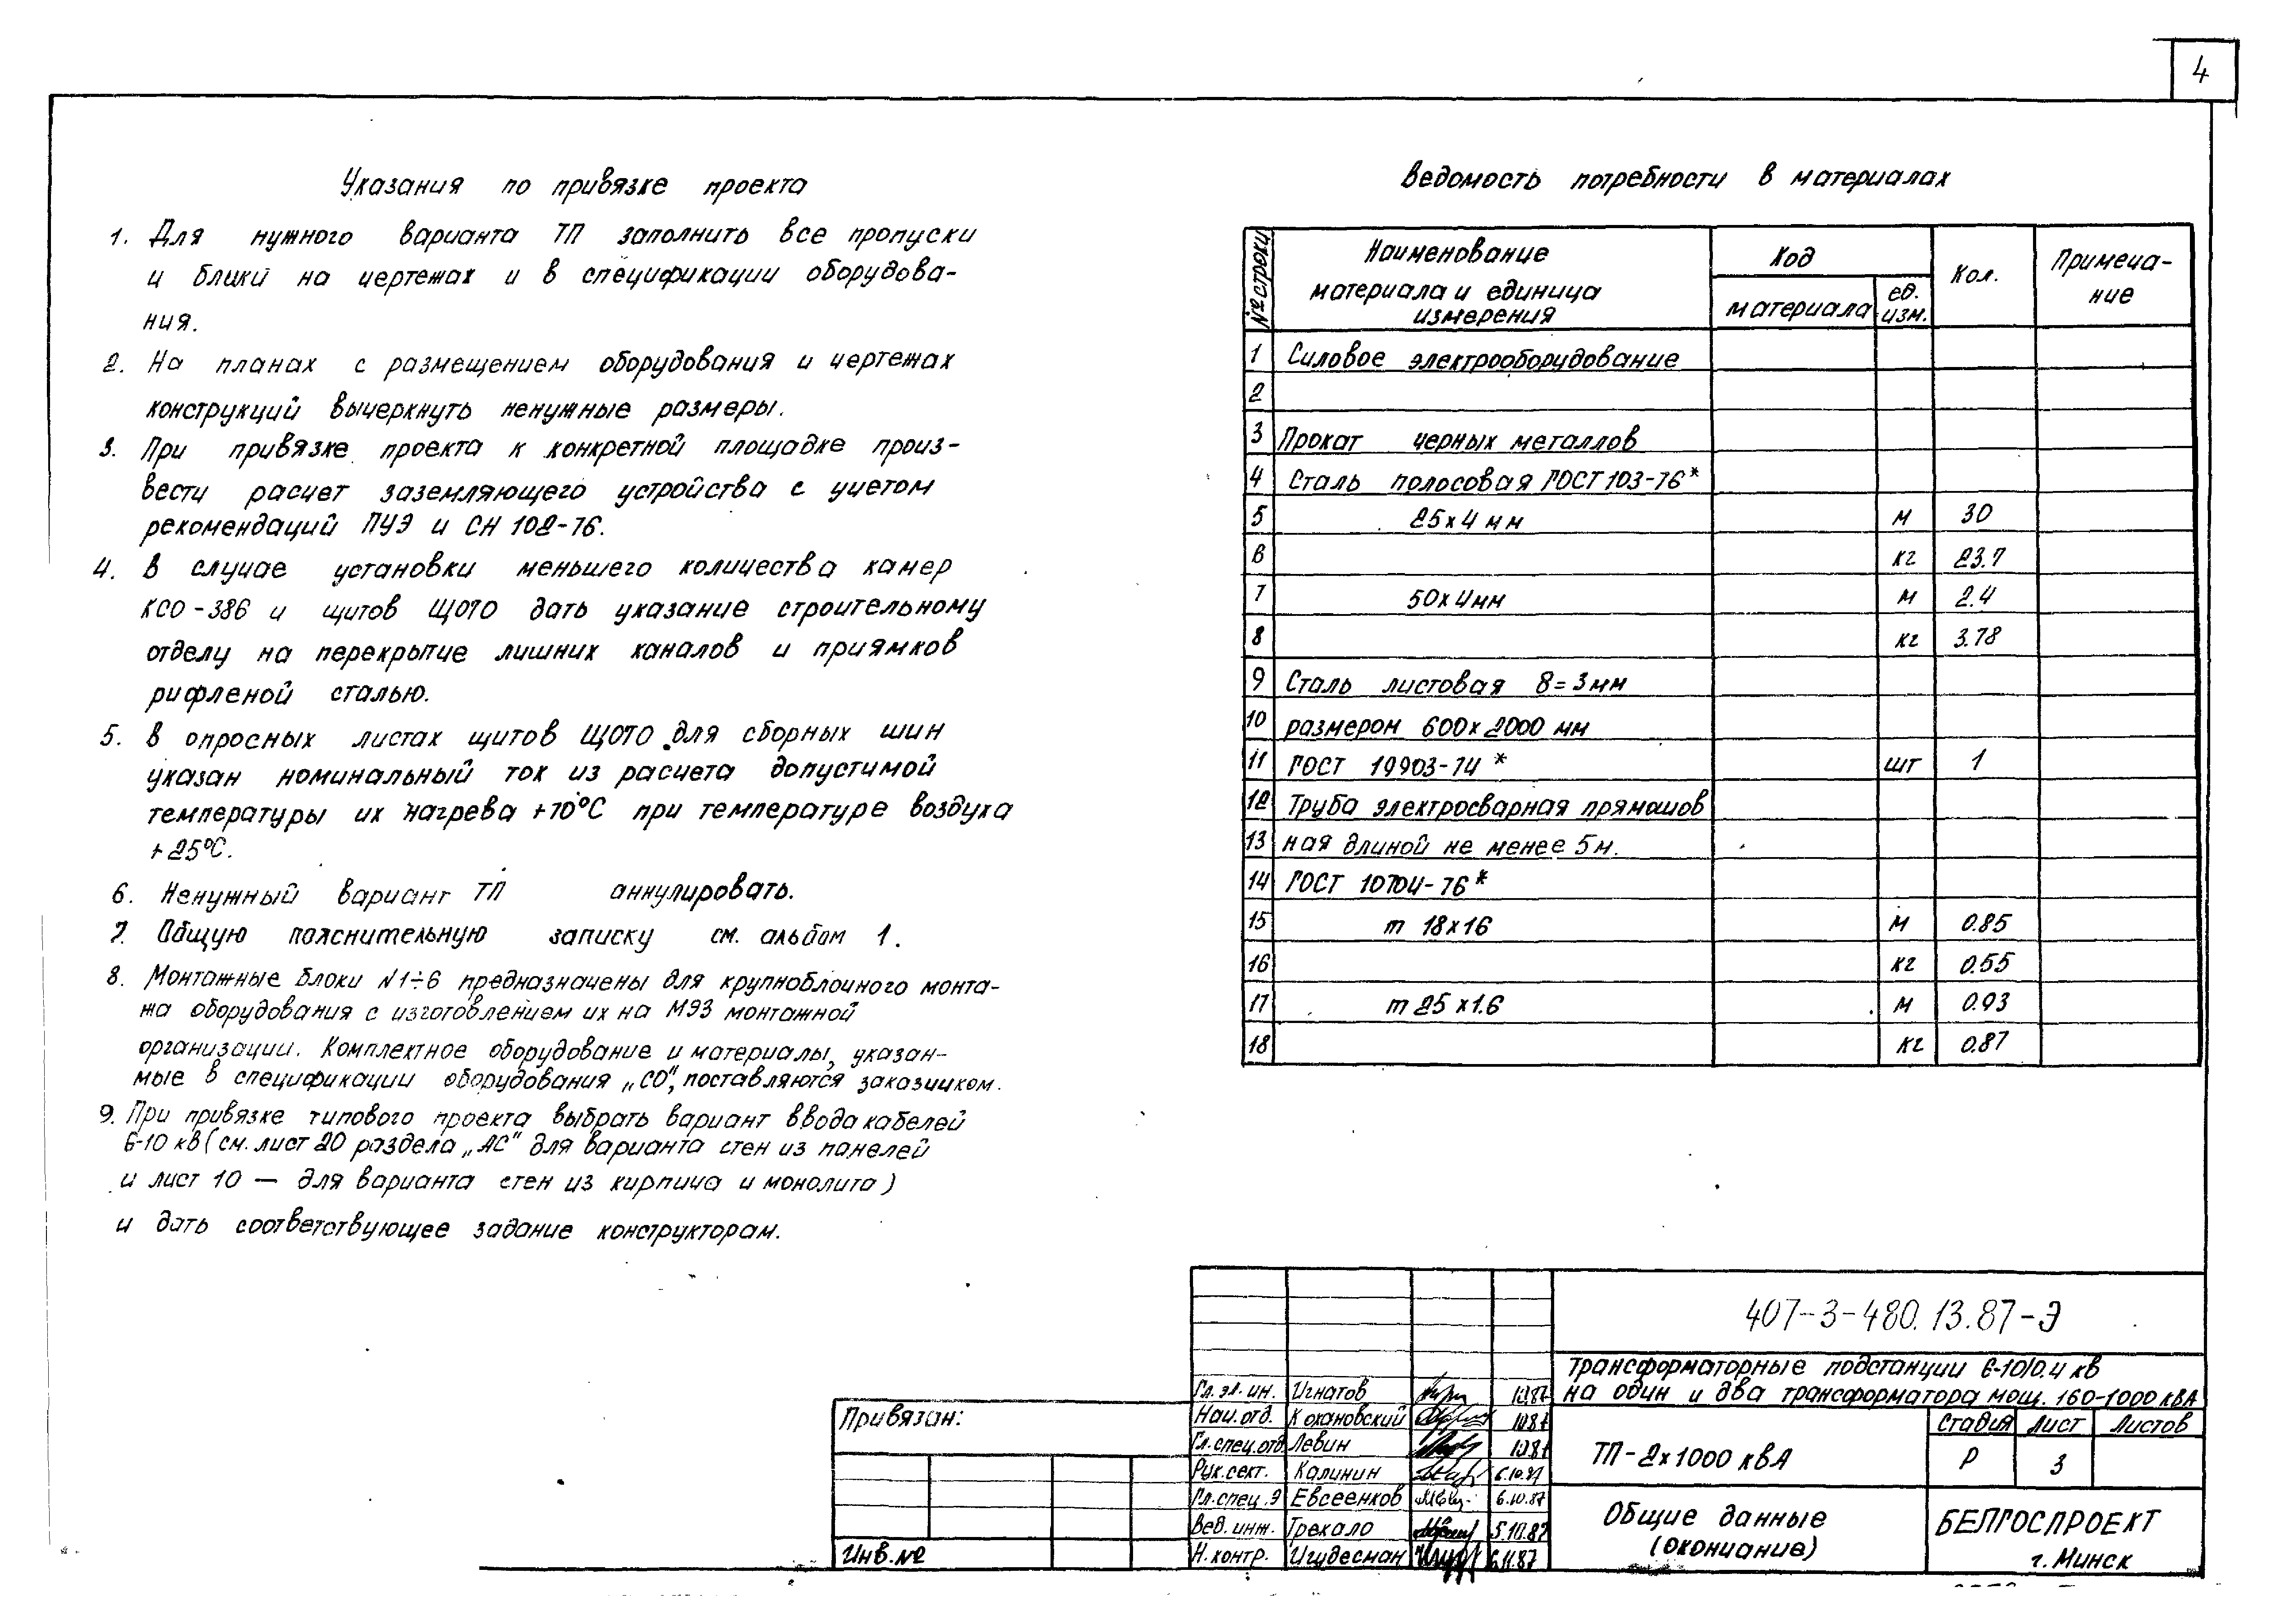 4
Указания по привязке проекта
1. Для нужного варианта ТП заполнить все пропуски
и блики на чертежах и в спецификации оборудова-
ния.
2. На планах с размещением оборудования и чертежах
конструкций вычеркнуть ненужные размеры.
3. При привязке проекта к конкретной площадке произ-
вести расчет заземляющего устройства с учетом
рекомендаций ПУЭ и СН 102-76.
4. В случае установки меньшего количества камер
КСО-386 и щитов ЩО70 дать указание строительному
отделу на перекрытие лишних каналов и приямков
рифленой сталью.
5. В опросных листах щитов ЩО70 для сборных шин
указан номинальный ток из расчета допустимой
температуры их нагрева +70°С при температуре воздуха
+25°С.
6. Ненужный вариант ТП аннулировать.
7. Общую пояснительную записку см. альбом 1.
8. Монтажные блоки №1÷6 предназначены для крупноблочного монта-
жа оборудования с изготовлением их на МЭЗ монтажной
организации. Комплектное оборудование и материалы, указан-
мые в спецификации оборудования „СО", поставляются заказчиком.
9. При привязке типового проекта выбрать вариант ввода кабелей
6-10 кВ (см. лист 20 раздела „АС" для варианта стен из панелей
и лист 10 — для варианта стен из кирпича и монолита)
и дать соответствующее задание конструкторам.
Ведомость потребности в материалах
№ строки Наименование материала и единица измерения Код материала ед. изм. Кол. Примеча-ние
1 Силовое электрооборудование
2
3 Прокат черных металлов
4 Сталь полосовая ГОСТ 103-76*
5 25х4 мм м 30
6 кг 23.7
7 50х4мм м 2.4
8 кг 3.78
9 Сталь листовая δ=3мм
10 размером 600х2000 мм
11 ГОСТ 19903-74 * шт 1
12 Труба электросварная прямошов
13 ная длиной не менее 5м.
14 ГОСТ 10704-76*
15 т 18х16 м 0.85
16 кг 0.55
17 т 25х1.6 м 0.93
18 кг 0.87
407-3-480.13.87-Э
Трансформаторные подстанции 6-10/0.4 кВ
на один и два трансформатора мощ. 160-1000 кВА
Гл. эл. ин. Игнатов 10.87
Нач. отд. Кохановский 10.87
Гл. спец. отд. Левин 10.87
Рук. сект. Калинин 6.10.87
Гл. спец. Э Евсеенков 6.10.87
Вед. инж. Трекало 5.10.87
Н. контр. Игудесман 6.11.87
Привязан:
Инв. №
ТП-2х1000 кВА
Стадия Лист Листов
Р 3
Общие данные
(окончание)
БЕЛГОСПРОЕКТ
г. Минск